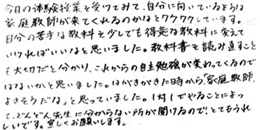 今日の体験授業を受けてみて、自分に向いているような
家庭教師が来てくれるのかなとワクワクしています。
自分の苦手な教科を少しでも得意な教科に変えて
いければいいなと思いました。教科書を読み直すこと
も大切だと分かり、これからの自主勉強が変わってくるので
はないかと思いました。はがきがきた時から「家庭教師、
よさそうだな」と思っていました。1対1でやることによっ
て、どんどん先生に分からない所が聞けるので、とてもうれし
いです。宜しくお願いします。